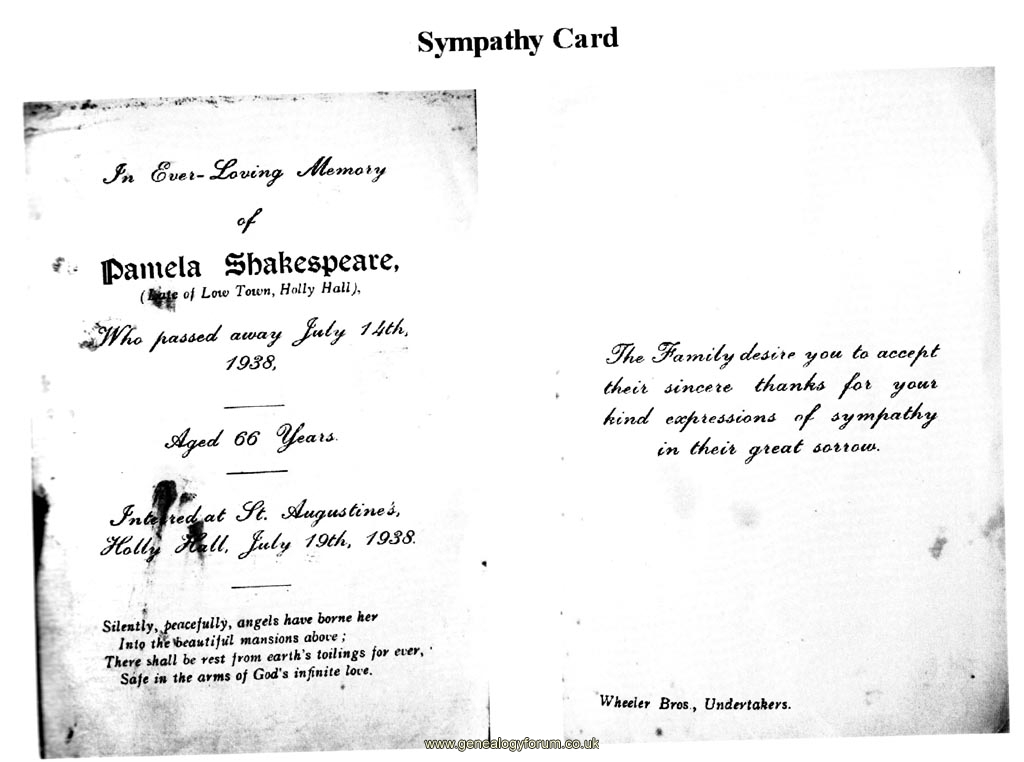 Sympathy Card
In Ever-Loving Memory
of
Pamela Shakespeare,
(Late of Low Town, Holly Hall),
Who passed away July 14th,
1938,
Aged 66 Years.
Interred at St. Augustine's,
Holly Hall, July 19th, 1938.
Silently, peacefully, angels have borne her
Into the beautiful mansions above;
There shall be rest from earth's toilings for ever,
Safe in the arms of God's infinite love.
The Family desire you to accept
their sincere thanks for your
kind expressions of sympathy
in their great sorrow.
Wheeler Bros., Undertakers.
www.genealogyforum.co.uk